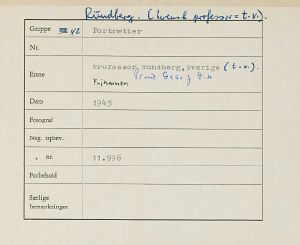 Rundberg. (svensk professor = t.v.).
Gruppe 42 Portretter
Nr.
Emne Professor Rundberg, Sverige (t.v.).
Dato 1945
Fotograf
Neg. oppev.
" nr. 11.996
Forbehold
Særlige
bemærkninger